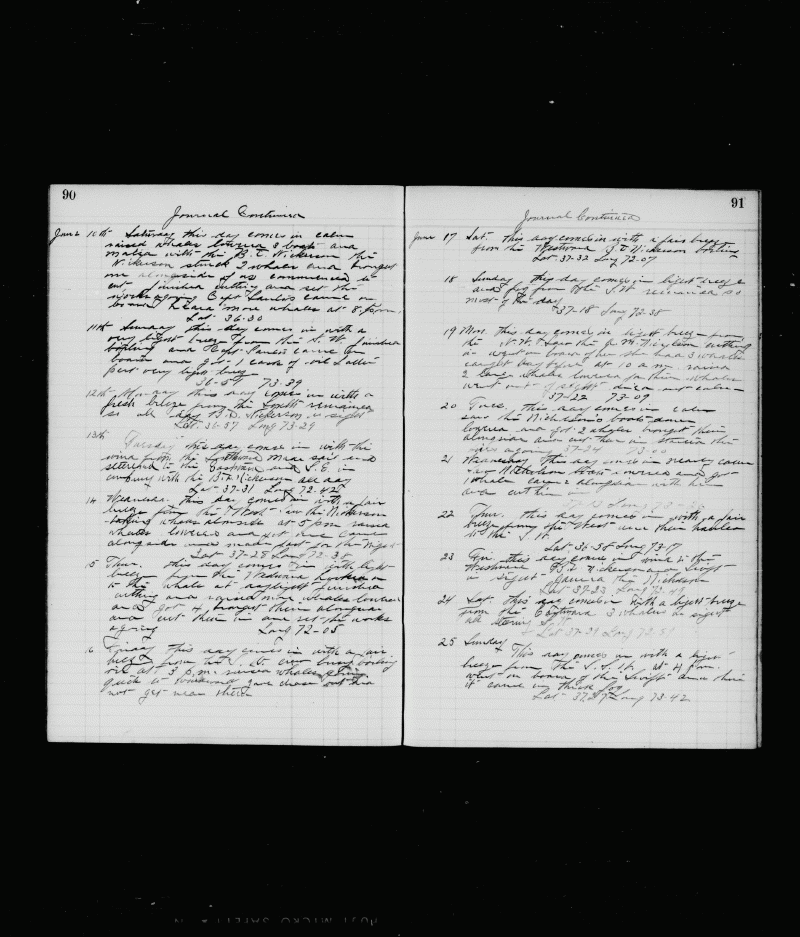 90
Journal Continued
June 10th Saturday this day comes in calm
raised whales lowered 3 boats and
mated with the B. T. Nickerson the
Nickerson struck 2 whales and brought
one alongside of us commenced to
cut finished cutting and set the
works agoing Capt came on
board heard more whales at 8 p.m.
Lat. 36-30
11th Sunday this day comes in with a
very light breeze from the S. W. finished
boiling and Capt came on
board and got casks of oil latter
part very light breeze
36-54 73-39
12th Monday this day comes in with a
fresh breeze from the South remained
so all day B. T. Nickerson in sight
Lat. 36-37 Long 73-29
13th
Tuesday this day comes in with the
wind from the Southward made sail and
steered to the Eastward and S. E. in
company with the B. T. Nickerson all day
Lat - 37-31 Long 72-42
14 Wednes. this day comes in with a fair
breeze from the West saw the Nickerson
taking whale alongside at 5 p.m. raised
whales lowered and got one came
alongside and made fast for the night
Lat 37-28 Long 72-38
15 Thur. this day comes in with light
breeze from the Westward hooked on
to the whale at daylight finished
cutting and raised more whales lowered
and got 4 brought them alongside
and cut them in and set the works
agoing Long 72-05
16 Friday this day comes in with a fair
breeze from the S. W. crew busy boiling
oil at 3 p.m. raised whales going
quick to windward gave chase but did
not get near them
91
Journal Continued
June 17 Sat. this day comes in with a fair breeze
from the Westward B T Nickerson boiling
Lat 37-32 Long 72-07
18 Sunday this day comes in light breeze
and fog from the S. W. remained so
most of the day
37-18 Long 72-38
19 Mon. this day comes in light breeze from
the N. W. saw the cutting
in went on board of her she had 3 whales
at 10 a.m. raised
2 large whales lowered for them whales
went out of sight
37-22 73-09
20 Tues. this day comes in calm
saw the Nickerson's boats down
lowered and got 2 whales brought them
alongside and cut them in started the
works agoing 37-24 73-00
21 Wednesday this day comes in nearly calm
saw Nickerson boats lowered and got
1 whale came alongside with him
and cut him in
22 Thur. this day comes in with a fair
breeze from the West
to the S. W.
Lat. 36-58 Long 73-17
23 Fri. this day comes in wind to the
Westward B. T. Nickerson and Swift
in sight the Nickerson
Lat 37-23 Long 72-46
24 Sat. this day comes in with a light breeze
from the Eastward 3 whalers in sight
all steering S. W.
Lat 37-21 Long 72-51
25 Sunday
This day comes in with a light
breeze from the S. S. W. at 4 p.m.
went on board of the Swift
it came in thick fog
Lat - 37-27 Long 73-42